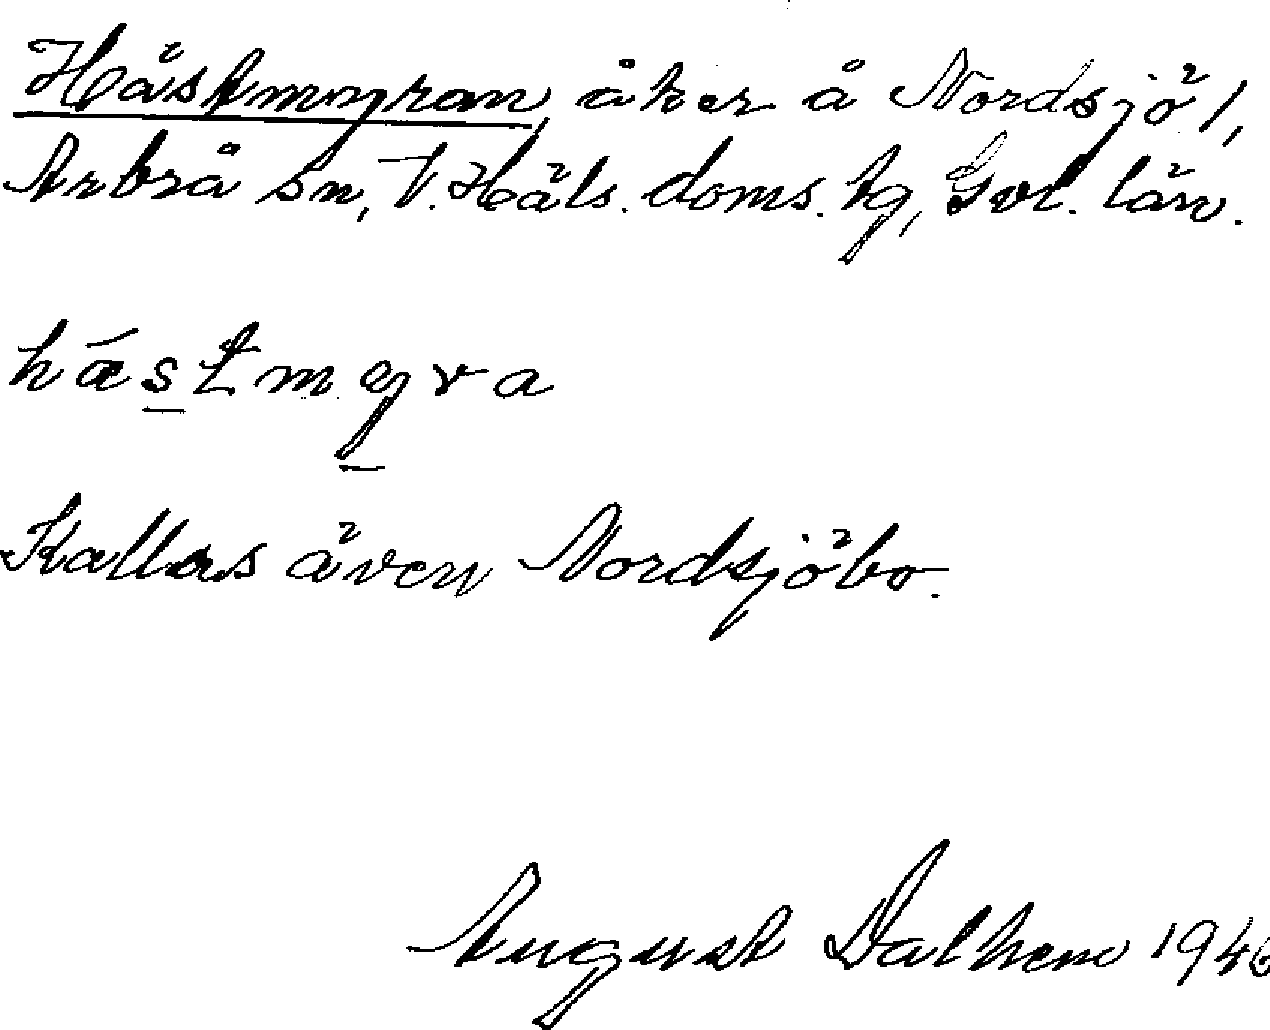 Hästmyran, åker å Nordsjö 1,
Arbrå sn, V. Häls. doms. tg, Gvl. län.
hástmyra
Kallas även Nordsjöbo.
August Dalhem 1946